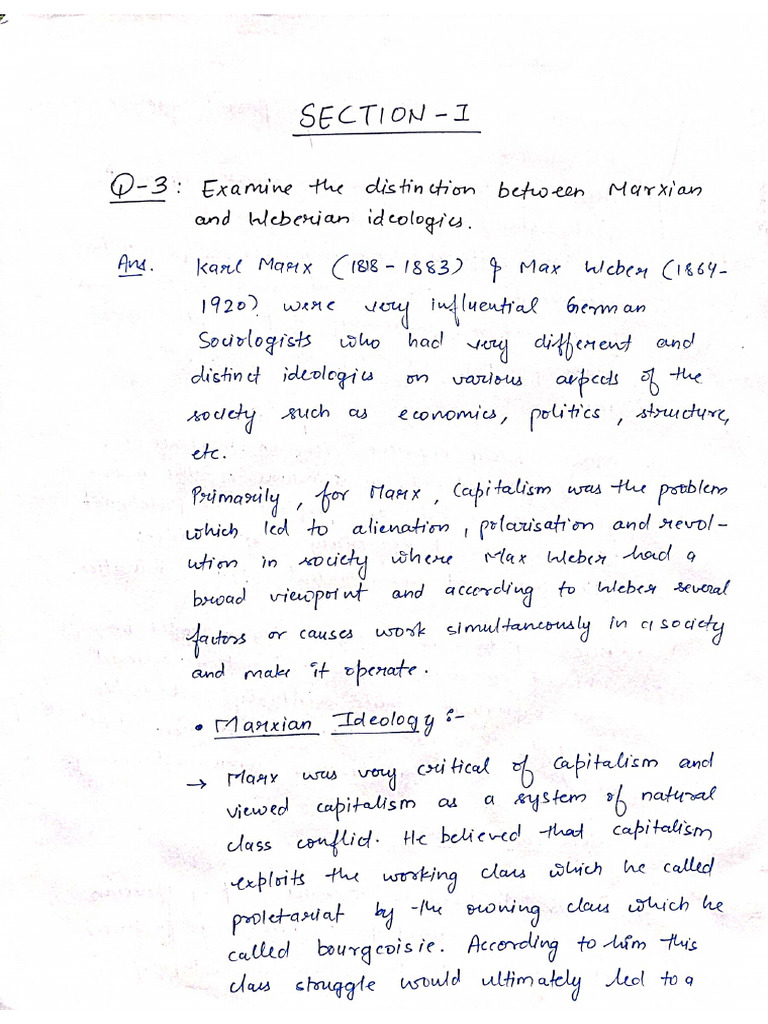 SECTION-I
Q-3: Examine the distinction between Marxian
and Weberian ideologies.
Ans. Karl Marx (1818-1883) & Max Weber (1864-
1920) were very influential German
Sociologists who had very different and
distinct ideologies on various aspects of the
society such as economics, politics, structure,
etc.
Primarily, for Marx, Capitalism was the problem
which led to alienation, polarisation and revol-
ution in society where Max Weber had a
broad viewpoint and according to Weber several
factors or causes work simultaneously in a society
and make it operate.
• Marxian Ideology :-
→ Marx was very critical of capitalism and
viewed capitalism as a system of natural
class conflict. He believed that capitalism
exploits the working class which he called
proletariat by the owning class which he
called bourgeoisie. According to him this
class struggle would ultimately led to a